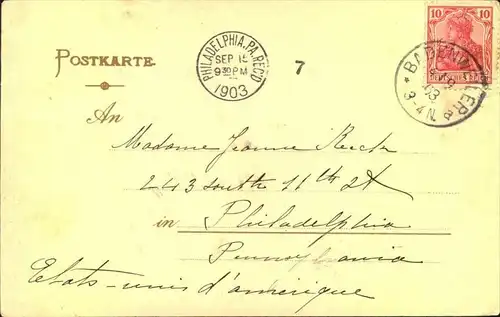 POSTKARTE.
PHILADELPHIA, PA. REC'D
SEP 1
9 30 PM
1903
7
10 10
DEUTSCHES REICH
* BADENWEILER *
3-4 N.
An
Madame Jeanne
243 south 11th st
in Philadelphia
Pennsylvania
Etats-unis d'amérique